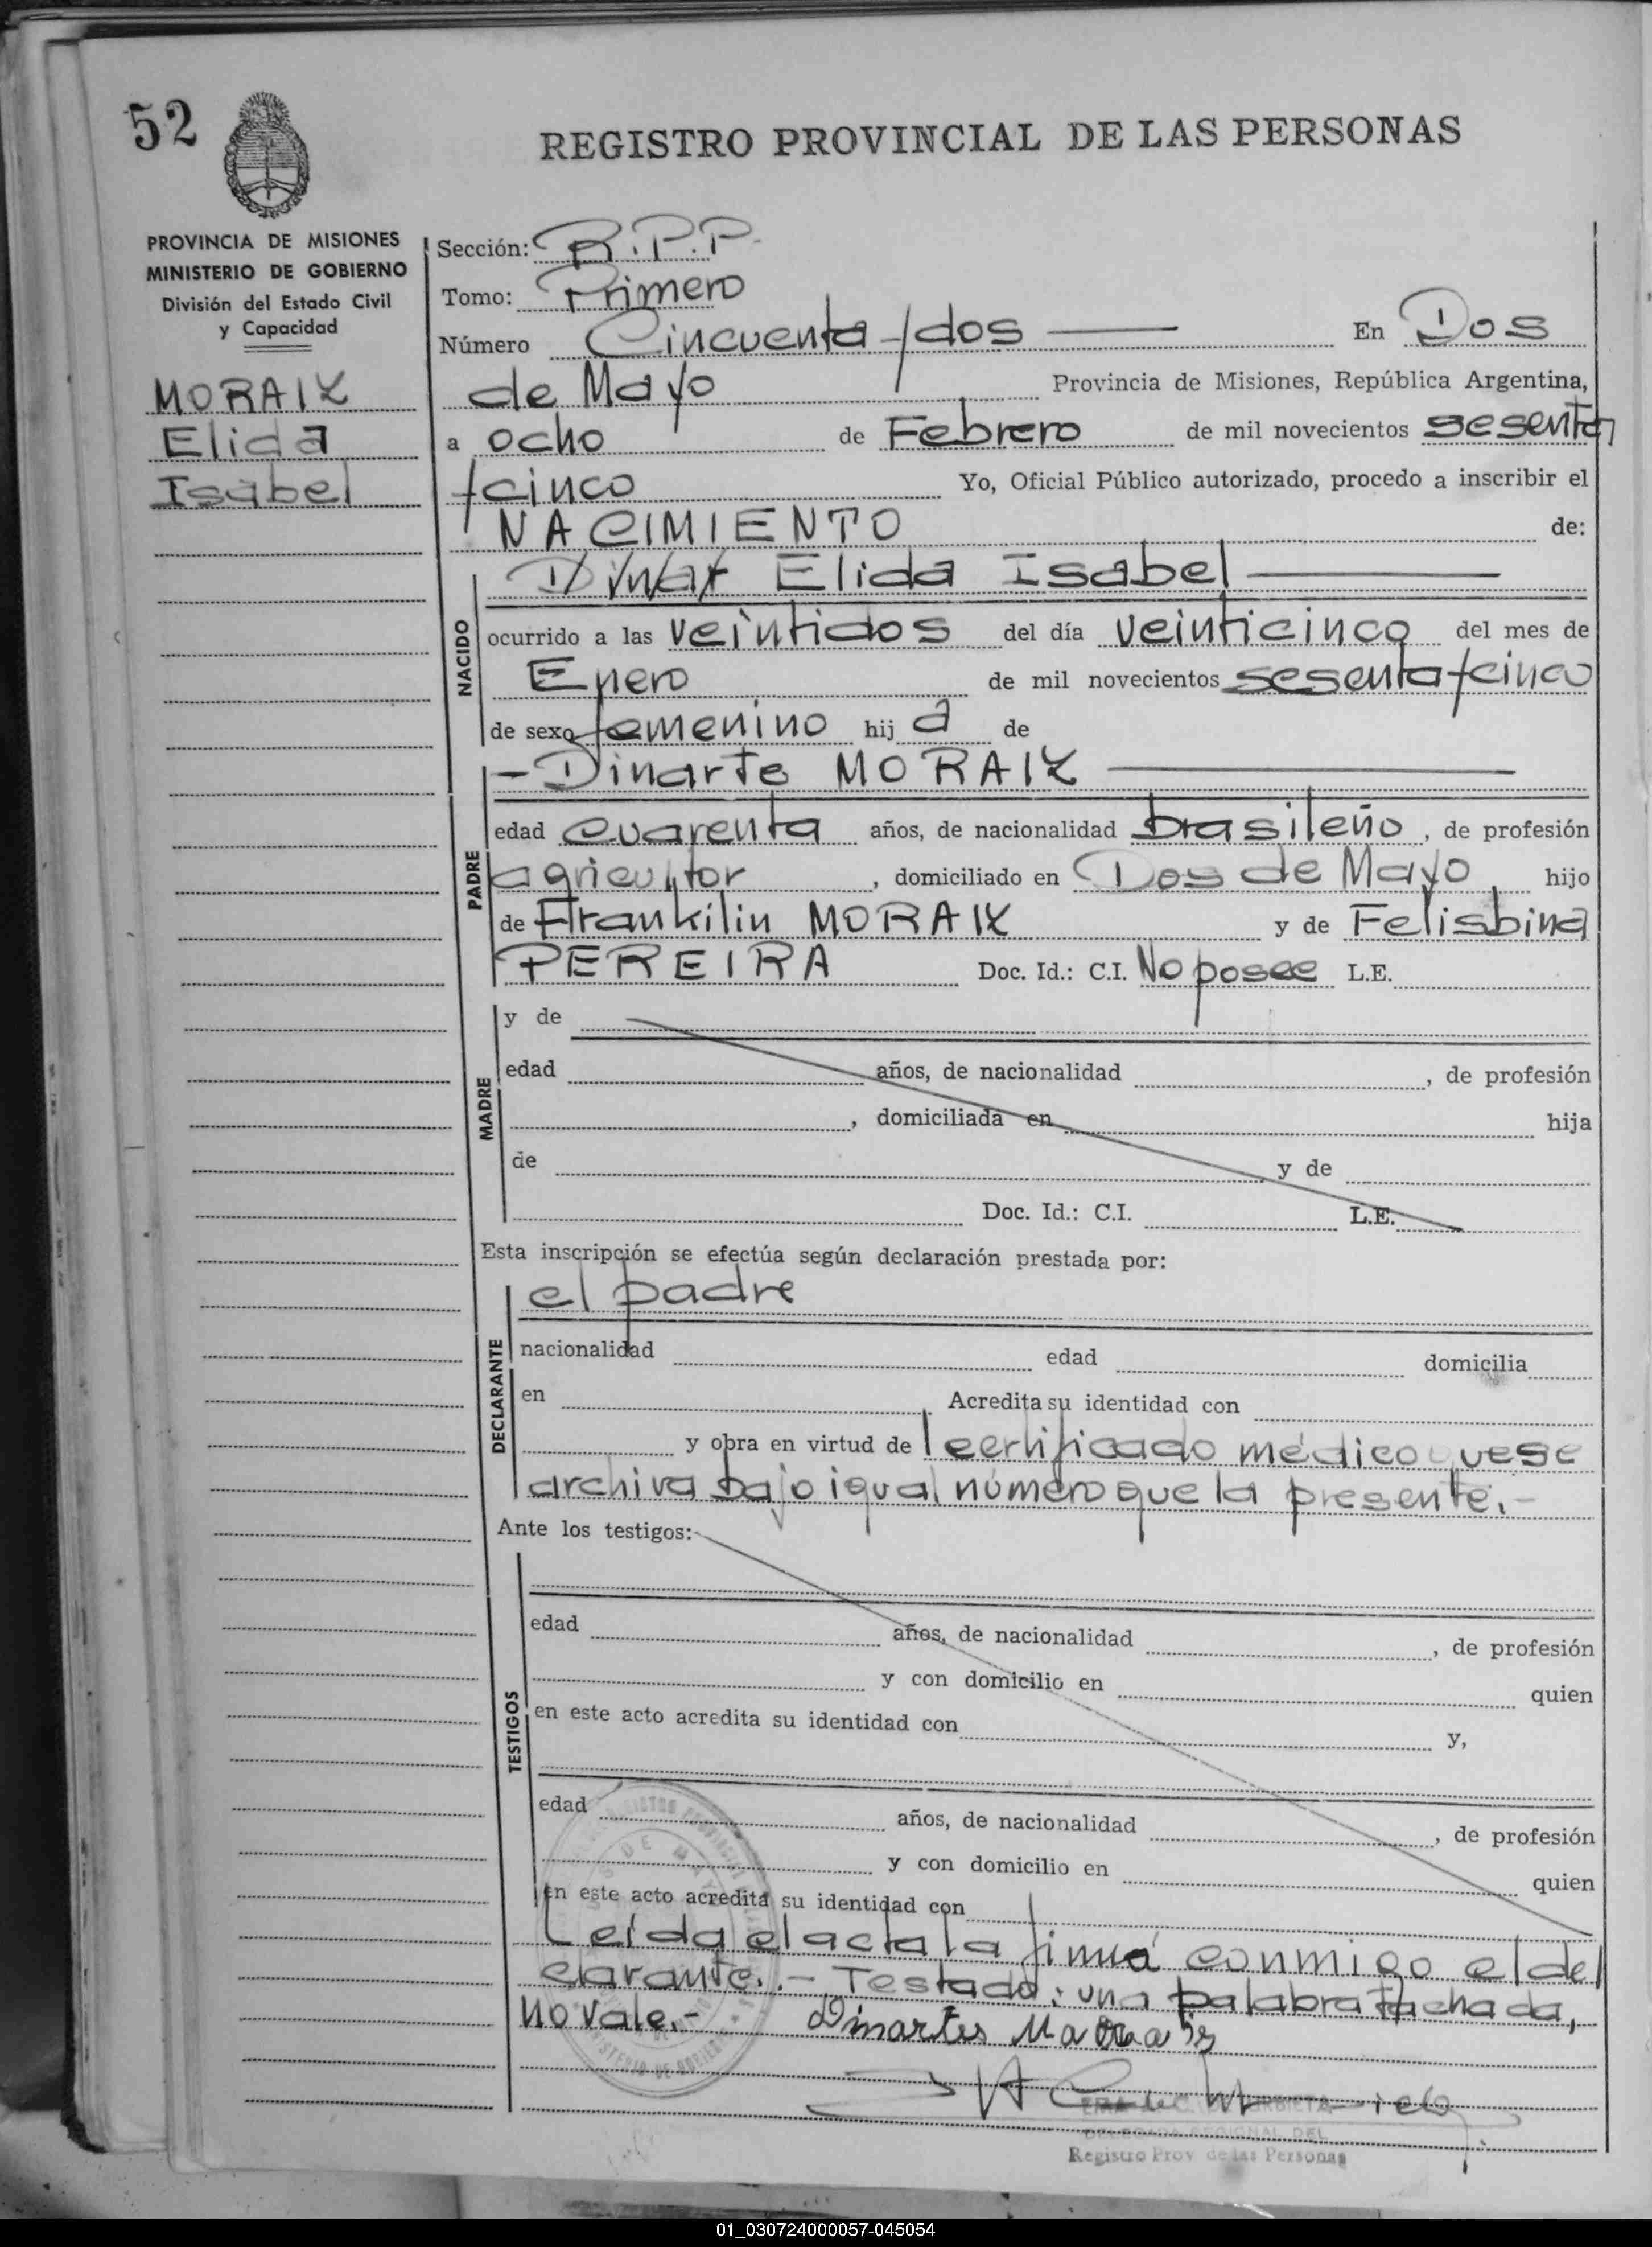 52
REGISTRO PROVINCIAL DE LAS PERSONAS
PROVINCIA DE MISIONES
MINISTERIO DE GOBIERNO
División del Estado Civil
y Capacidad
MORAIZ
Elida
Isabel
Sección: R.P.P.
Tomo: Primero
Número Cincuenta y dos En Dos
de Mayo Provincia de Misiones, República Argentina,
a ocho de Febrero de mil novecientos sesenta
y cinco Yo, Oficial Público autorizado, procedo a inscribir el
NACIMIENTO de:
Elida Isabel
NACIDO
ocurrido a las veintidos del día veinticinco del mes de
Enero de mil novecientos sesenta y cinco
de sexo femenino hij a de
- Dinarte MORAIZ
PADRE
edad cuarenta años, de nacionalidad brasileño, de profesión
agricultor, domiciliado en Dos de Mayo hijo
de Frankilin MORAIZ y de Felisbina
PEREIRA Doc. Id.: C.I. No posee L.E.
MADRE
y de
edad años, de nacionalidad , de profesión
, domiciliada en hija
de y de
Doc. Id.: C.I. L.E.
Esta inscripción se efectúa según declaración prestada por:
el padre
DECLARANTE
nacionalidad edad domicilia
en Acredita su identidad con
y obra en virtud de certificado médico que se
archiva bajo igual número que la presente.-
Ante los testigos:
TESTIGOS
edad años, de nacionalidad , de profesión
y con domicilio en quien
en este acto acredita su identidad con y,
edad años, de nacionalidad , de profesión
y con domicilio en quien
en este acto acredita su identidad con
Leída el acta la firma conmigo el de
clarante.- Testado: una palabra tachada,
no vale.- Dinartes
Registro Prov de las Personas
01_030724000057-045054